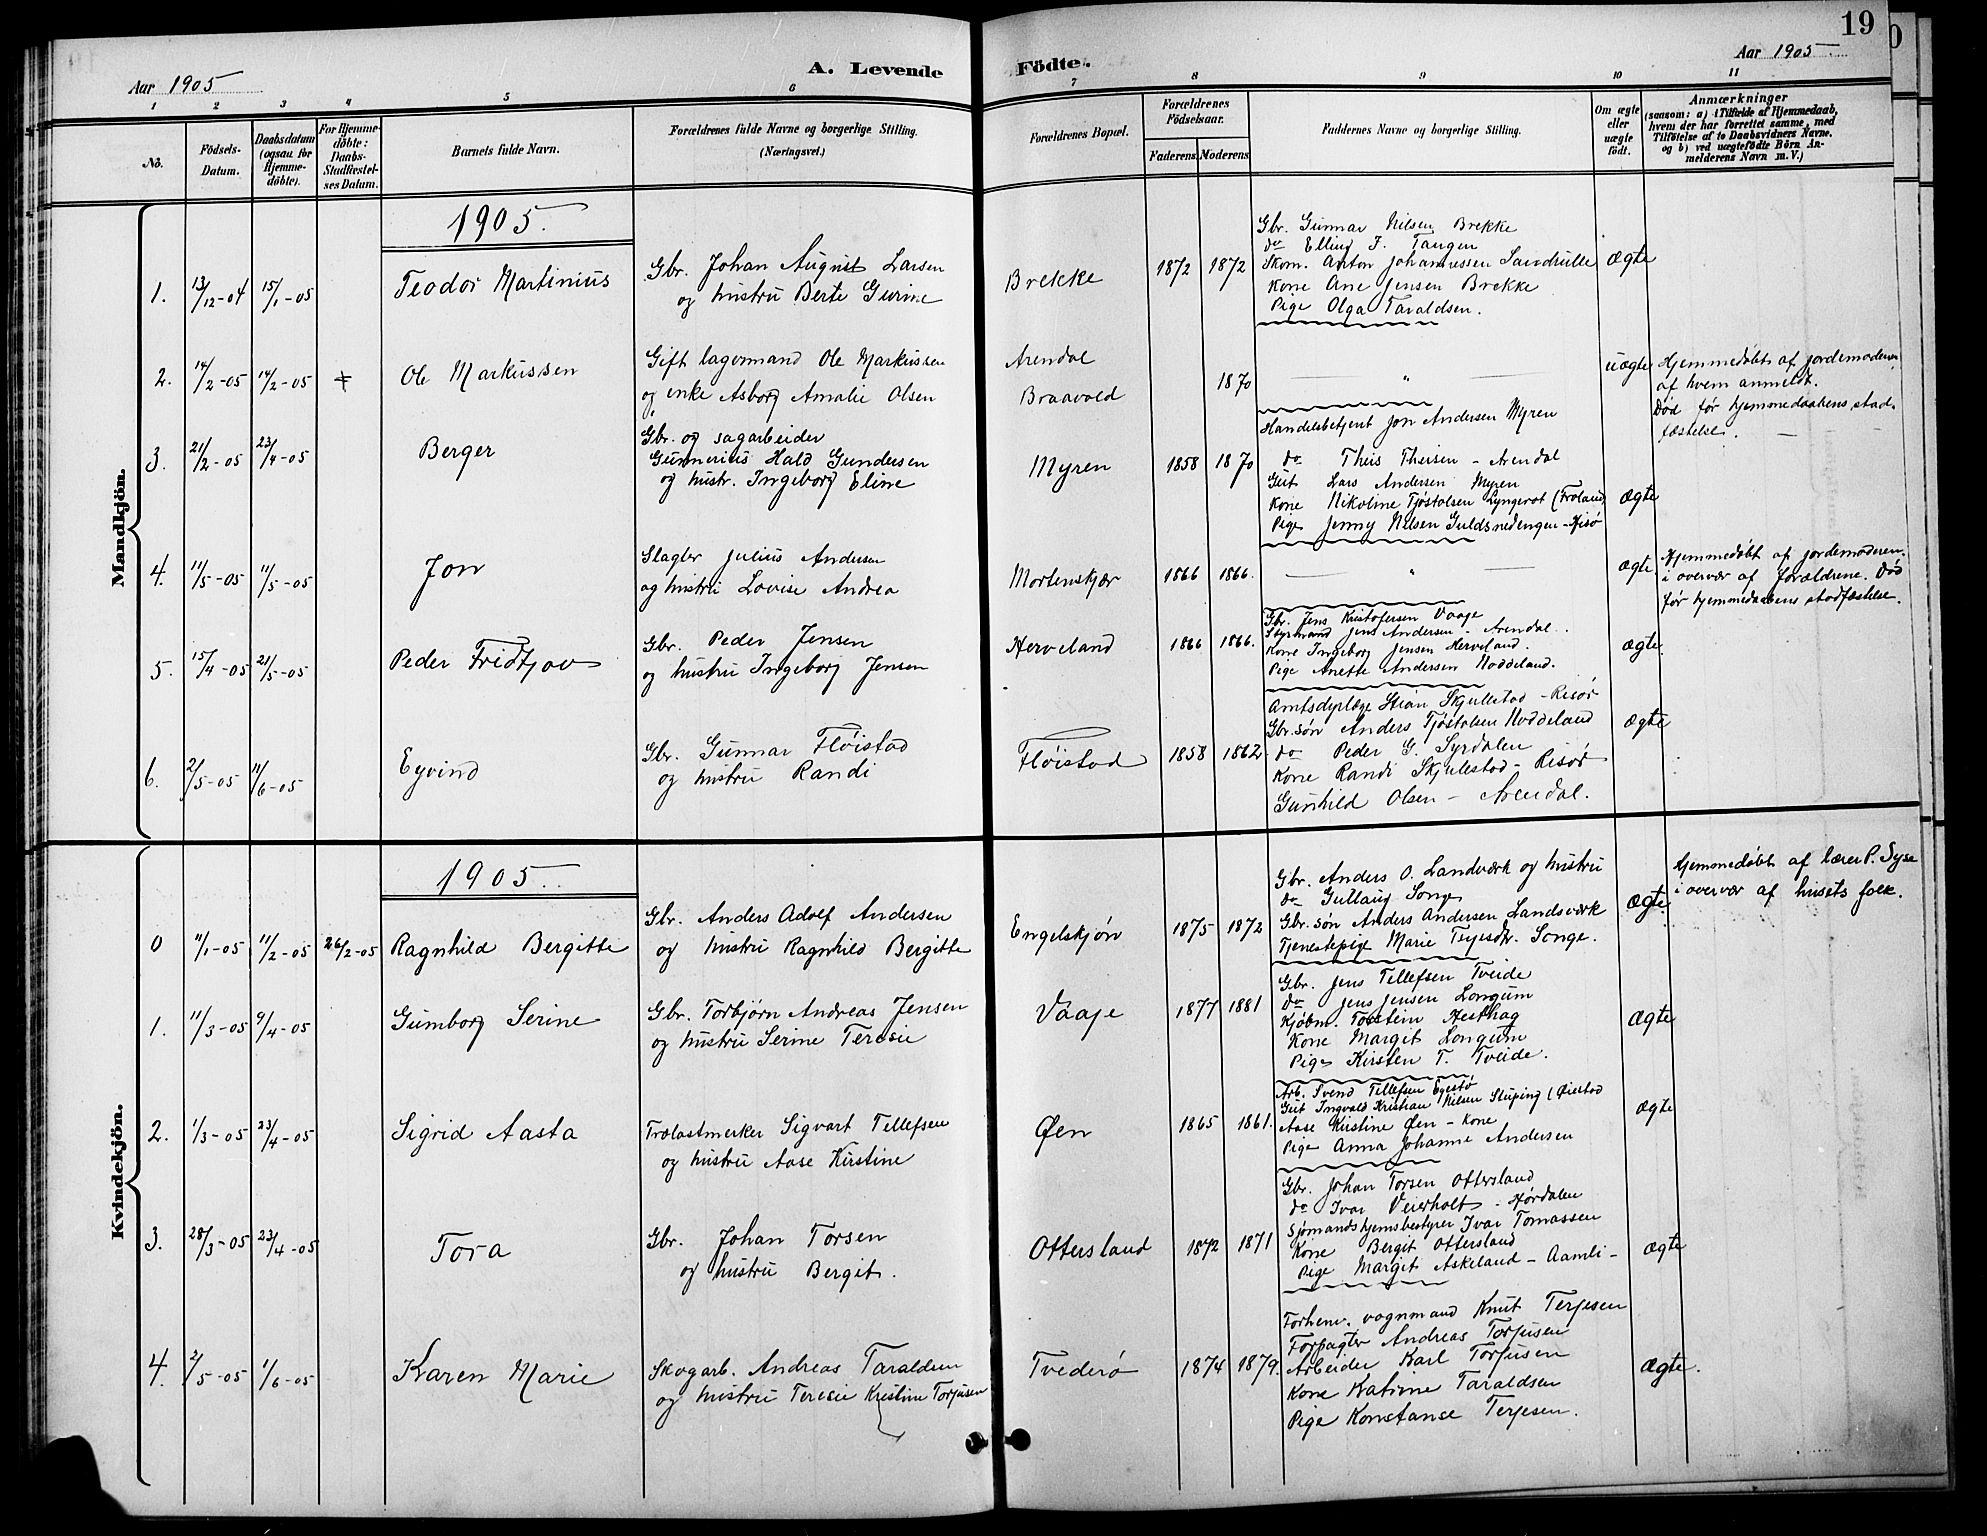 19
Aar 1905
A. Levende Födte.
Aar 1905
1 2 3 4 5 6 7 8 9 10 11
No.
Födsels-Datum.
Daabsdatum (ogsaa for Hjemme-döbte).
For Hjemme-döbte: Daabs-Stadfæstel-ses Datum.
Barnets fulde Navn.
Forældrenes fulde Navne og borgerlige Stilling.
(Næringsvei.)
Forældrenes Bopæl.
Forældrenes Födselsaar.
Faderens Moderens
Faddernes Navne og borgerlige Stilling.
Om ægte eller uægte födt.
Anmærkninger
(saasom: a) i Tilfælde af Hjemmedaab,
hvem der har forrettet samme, med
Tilföielse af to Daabsvidners Navne.
og b) ved uægtefödte Börn An-
melderens Navn m. V.)
Mandkjön.
1905.
1. 13/12-04 15/1-05 Teodor Martinius
Gbr. Johan August Larsen
og hustru Berte Gurine
Brekke 1872 1872
Gbr. Gunnar Nilsen Brekke
do Elling J. Tangen
Skom. Anton Johannessen Sandrulle
Kone Ane Jensen Brekke
Pige Olga Taraldsen.
ægte
2. 14/2-05 14/2-05 + Ole Markussen
Gift lagermand Ole Markussen
og enke Asborg Amalie Olsen
Arendal
Braavold 1870
— " —
uægte
Hjemmedøbt af jordemoderen,
af hvem anmeldt.
Død før hjemmedaabens stad-
fæstelse. —
3. 21/2-05 23/4-05 Berger
Gbr. og sagarbeider
Gunnerius Hald Gundersen
og hustr. Ingeborg Eline
Myren 1858 1870
Handelsbetjent Jon Andersen Myren
do Theis Theisen - Arendal
Gut Lars Andersen Myren
Kone Nikoline Tjøstolsen Lyngerot (Froland)
Pige Jenny Nilsen Guldsmedengen - Hisø
ægte
4. 11/5-05 11/5-05 Jon
Slagter Julius Andersen
og hustru Lovise Andrea
Mortenskjær 1866 1866.
— " —
ægte.
Hjemmedøbt af jordemoderen
i overvær af forældrene. Død
før hjemmedaabens stadfæstelse.
5. 15/4-05 21/5-05 Peder Fridtjov
Gbr. Peder Jensen
og hustru Ingeborg Jensen
Herveland 1866 1866.
Gbr. Jens Kristofersen Vaage
Styrmand Jens Andersen - Arendal.
Kone Ingeborg Jensen Herveland.
Pige Anette Andersen Noddeland.
ægte.
6. 2/5-05 11/6-05 Eyvind
Gbr. Gunnar Fløistad
og hustru Randi
Fløistad 1858 1862
Amtsdyrlæge Stian Skjullestad - Risør
Gbr.søn Anders Tjøstolsen Noddeland
do Peder G. Syrdalen
Kone Randi Skjullestad - Risør
Gunhild Olsen - Arendal.
ægte
Kvindekjön.
1905.
0 11/1-05 11/2-05 26/2-05 Ragnhild Bergitte
Gbr. Anders Adolf Andersen
og hustru Ragnhild Bergitte
Engelskjøn 1875 1872
Gbr. Anders O. Landværk og hustru
do Gullaug Songe
Gbr. søn Anders Andersen Landsværk
Tjenestepige Marie Songe.
ægte.
Hjemmedøbt af lærer P. Syse
i overvær af husets folk.
1. 11/3-05 9/4-05 Gumborg Serine
Gbr. Torbjørn Andreas Jensen
og hustru Serine Teresie
Vaaje 1877 1881
Gbr. Jens Tellefsen Tveide
do Jens Jensen Longum
Kjøbm. Torstein Hesthag
Kone Margit Longum
Pige Kirsten T. Tveide.
ægte
2. 1/3-05 23/4-05 Sigrid Aasta
Trælastmerker Sigvart Tellefsen
og hustru Aase Kirstine
Øen 1865 1861.
Arb. Svend Tellefsen
Gut Ingvald Kristian Nilsen (Øiestad
Aase Kirstine Øen - Kone
Pige Anna Johanne Andersen
ægte
3. 28/3-05 23/4-05 Tora
Gbr. Johan Torsen
og hustru Bergit.
Ottersland 1872 1871
Gbr. Johan Torsen Ottersland
do Ivar Veierholt - Hørdalen
Sjømandshjemsbestyrer Ivar Tomassen
Kone Bergit Ottersland
Pige Margit Askeland - Aamli -
ægte
4. 2/5-05 1/6-05 Karen Marie
Skogarb. Andreas Taraldsen
og hustru Teresie Kristine Torjusen
Tvederø 1874 1879.
Forhenv. vognmand Knut Terjesen
Forpagter Andreas Torjusen
Arbeider Karl Torjusen
Kone Katrine Taraldsen
Pige Konstanse Terjesen.
ægte.